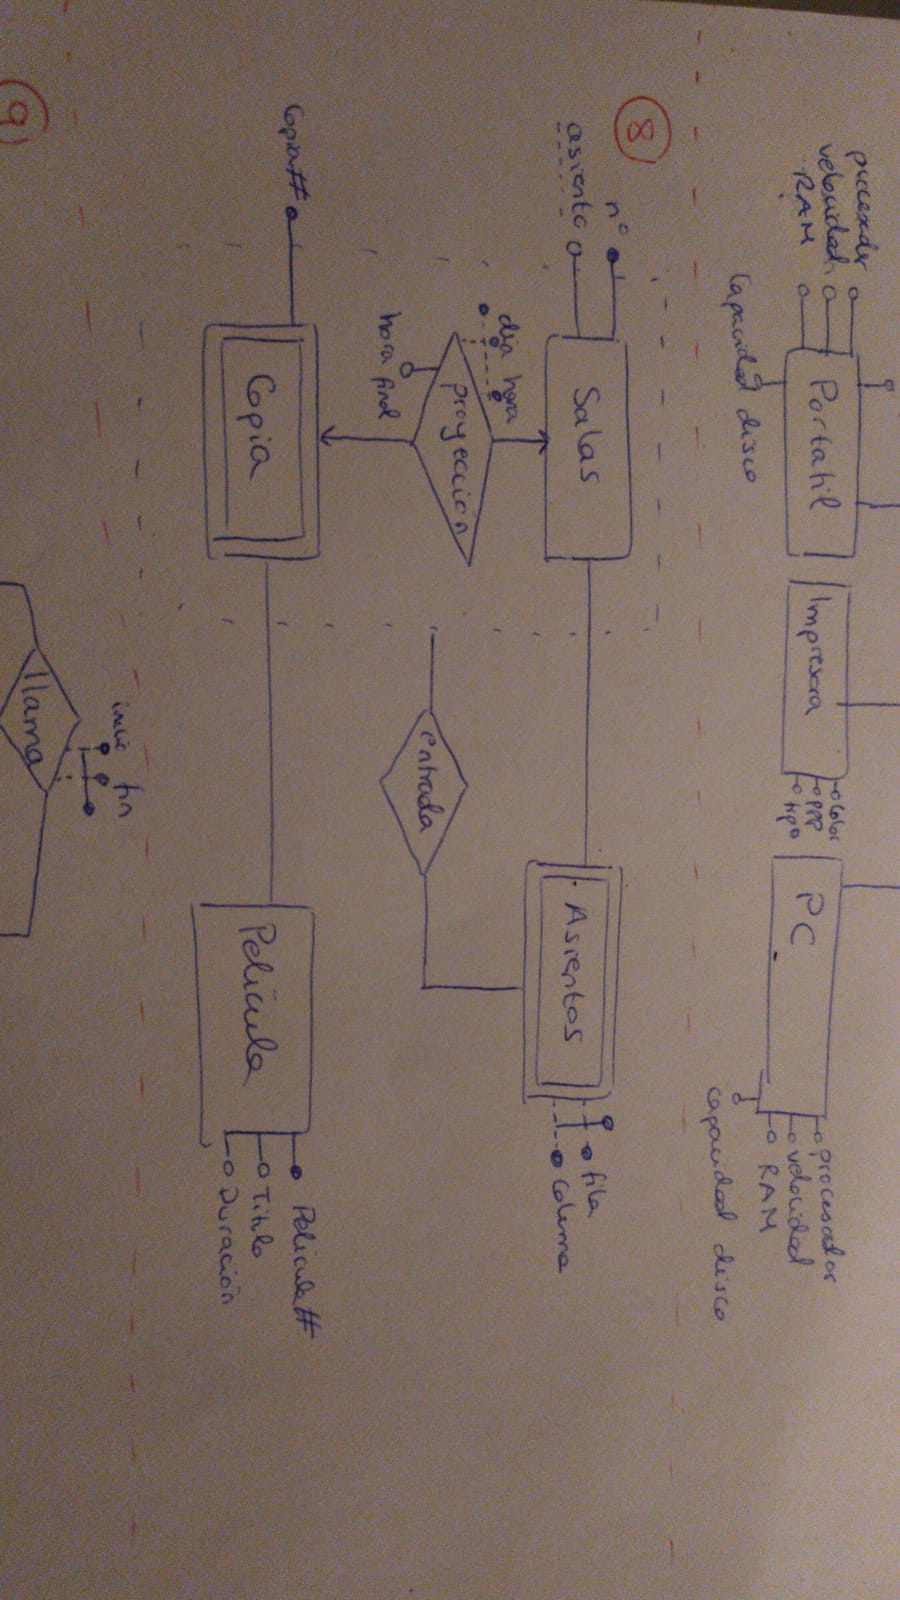 procesador
velocidad
RAM
Portatil
Capacidad disco
Impresora
Color
ppp
tipo
PC
procesador
velocidad
RAM
capacidad disco
8
nº
asiento
Salas
Asientos
fila
Columna
dia hora
proyección
hora final
entrada
Copia#
Copia
Película
Pelicula#
Titulo
Duración
inicio fin
llama
9